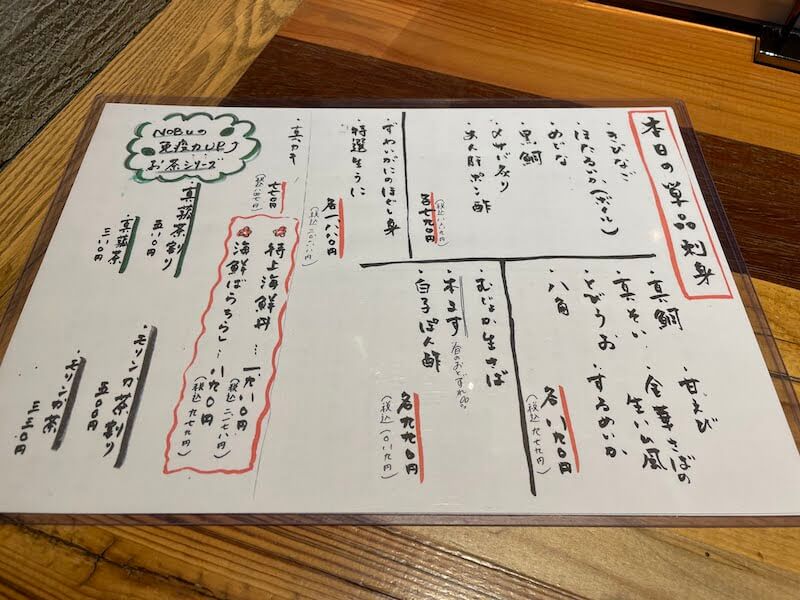 本日の単品刺身
・きびなご
・ほたるいか(ボイル)
・めじな
・黒鯛
・〆サバ炙り
・あん肝ポン酢
各七九〇円
(税込八六九円)
・ずわいがにのほぐし身
・特選生うに
各一、八八〇円
(税込二、〇六八円)
・真鯛 甘えび
・真そい 金華さばの
生ハム風
・とびうお するめいか
・八角
各八九〇円
(税込九七九円)
むじょか生さば
・本ます
・白子ぽん酢
各九九〇円
(税込一、〇八九円)
・真カキ
七七〇円
(税込八四七円)
特上海鮮丼…一、九八〇円
(税込二、一七八円)
海鮮ばらちらし…八九〇円
(税込九七九円)
NOBUの
免疫力UP
お茶シリーズ
・真菰茶割り
五〇〇円
・真菰茶
三三〇円
・モリンガ茶割り
五〇〇円
・モリンガ茶
三三〇円